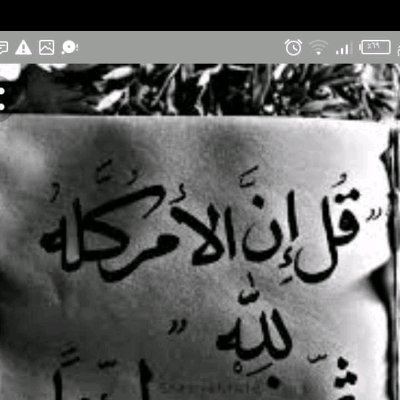 ٪٦٩
" قُل إِنَّ الأَمرُ كُلَّهُ
لِلَّهِ "